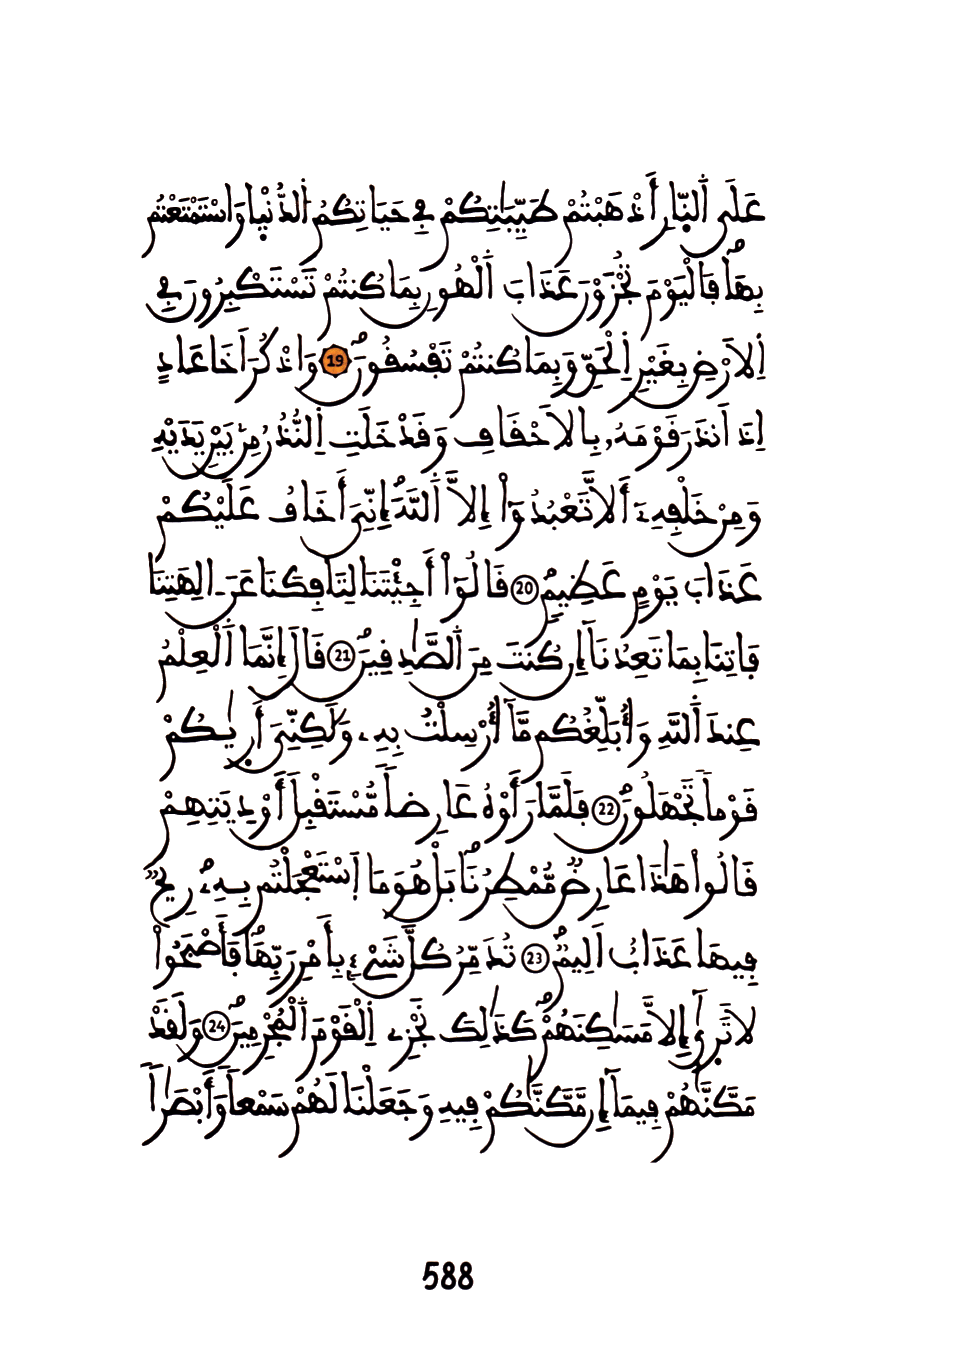 عَلَى اَ۬لنّ۪ارِ أَذْهَبْتُمْ طَيِّبَٰتِكُمْ فِے حَيَاتِكُمُ اُ۬لدُّنْي۪ا وَاسْتَمْتَعْتُم
بِهَاۖ فَالْيَوْمَ تُجْزَوْنَ عَذَابَ اَ۬لْهُونِ بِمَا كُنتُمْ تَسْتَكْبِرُونَ فِے
اِ۬لَارْضِ بِغَيْرِ اِ۬لْحَقِّ وَبِمَا كُنتُمْ تَفْسُقُونَۖ 19 وَاذْكُرَ اَخَا عَادٍ
اِذَ اَنذَرَ قَوْمَهُۥ بِالَاحْقَافِ وَقَدْ خَلَتِ اِ۬لنُّذُرُ مِنۢ بَيْنِ يَدَيْهِ
وَمِنْ خَلْفِهِۦٓ أَلَّا تَعْبُدُوٓاْ إِلَّا اَ۬للَّهَۖ إِنِّيَ أَخَافُ عَلَيْكُمْ
عَذَابَ يَوْمٍ عَظِيمٖۖ 20 قَالُوٓاْ أَجِئْتَنَا لِتَافِكَنَا عَنَ اٰلِهَتِنَا
فَاتِنَا بِمَا تَعِدُنَآ إِن كُنتَ مِنَ اَ۬لصَّٰدِقِينَۖ 21 قَالَ إِنَّمَا اَ۬لْعِلْمُ
عِندَ اَ۬للَّهِ وَأُبَلِّغُكُم مَّآ أُرْسِلْتُ بِهِۦ وَلَٰكِنِّيَ أَر۪يٰكُمْ
قَوْماٗ تَجْهَلُونَۖ 22 فَلَمَّا رَأَوْهُ عَارِضاٗ مُّسْتَقْبِلَ أَوْدِيَتِهِمْ
قَالُواْ هَٰذَا عَارِضٞ مُّمْطِرُنَاۖ بَلْ هُوَ مَا اَ۪سْتَعْجَلْتُم بِهِۦۖ رِيحٞ
فِيهَا عَذَابٌ اَلِيمٞۖ 23 تُدَمِّرُ كُلَّ شَےْءِۢ بِأَمْرِ رَبِّهَاۖ فَأَصْبَحُواْ
لَا تَر۪يٰٓ إِلَّا مَسَٰكِنَهُمْۖ كَذَٰلِكَ نَجْزِے اِ۬لْقَوْمَ اَ۬لْمُجْرِمِينَۖ 24 وَلَقَدْ
مَكَّنَّٰهُمْ فِيمَآ إِن مَّكَّنَّٰكُمْ فِيهِ وَجَعَلْنَا لَهُمْ سَمْعاٗ وَأَبْصَٰراٗ
588